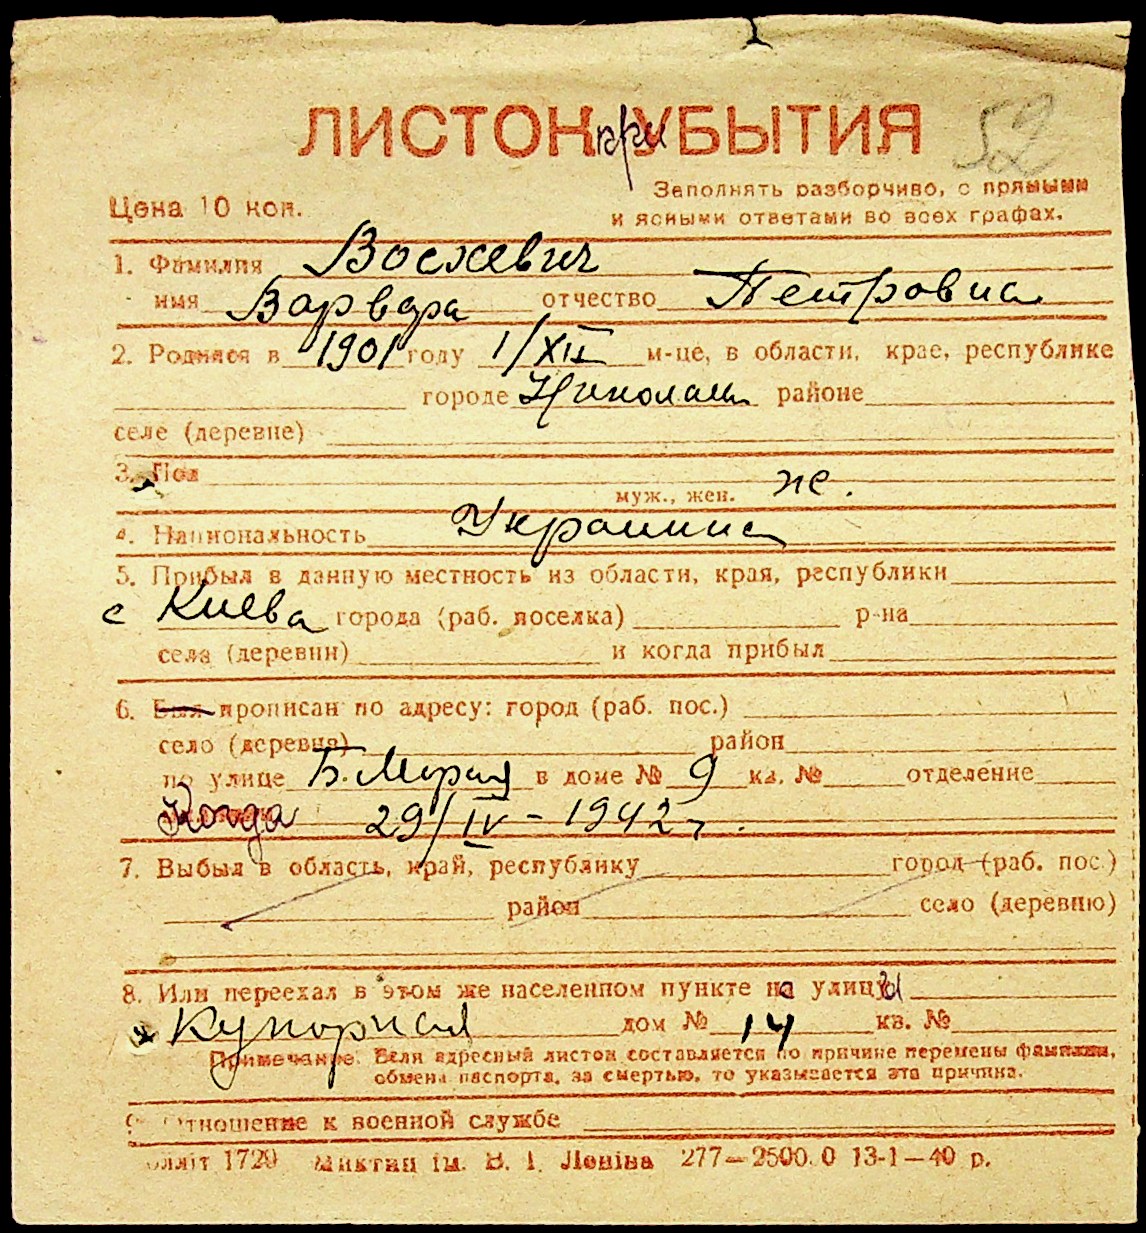 ЛИСТОК при УБЫТИЯ 52
Цена 10 коп.
Заполнять разборчиво, с прямыми
и ясными ответами во всех графах.
1. Фамилия Воскевич
имя Варвара отчество Петровна
2. Родился в 1901 году 1/XII м-це, в области, крае, республике
городе Николаев районе
селе (деревне)
3. Пол
муж., жен. же.
4. Национальность Украинка
5. Прибыл в данную местность из области, края, республики
с Киева города (раб. поселка) р-на
села (деревни) и когда прибыл
6. Был прописан по адресу: город (раб. пос.)
село (деревня) район
по улице Б. Морая в доме № 9 кв. № отделение
Когда 29/IV - 1942 г.
7. Выбыл в область, край, республику город (раб. пос.)
район село (деревню)
8. Или переехал в этом же населенном пункте на улицы
дом № 14 кв. №
Примечание. Если адресный листок составляется по причине перемены фамилии,
обмена паспорта, за смертью, то указывается эта причина.
9. Отношение к военной службе
олліт 1729 ім. В. І. Леніна 277—2500.0 13-1—40 р.